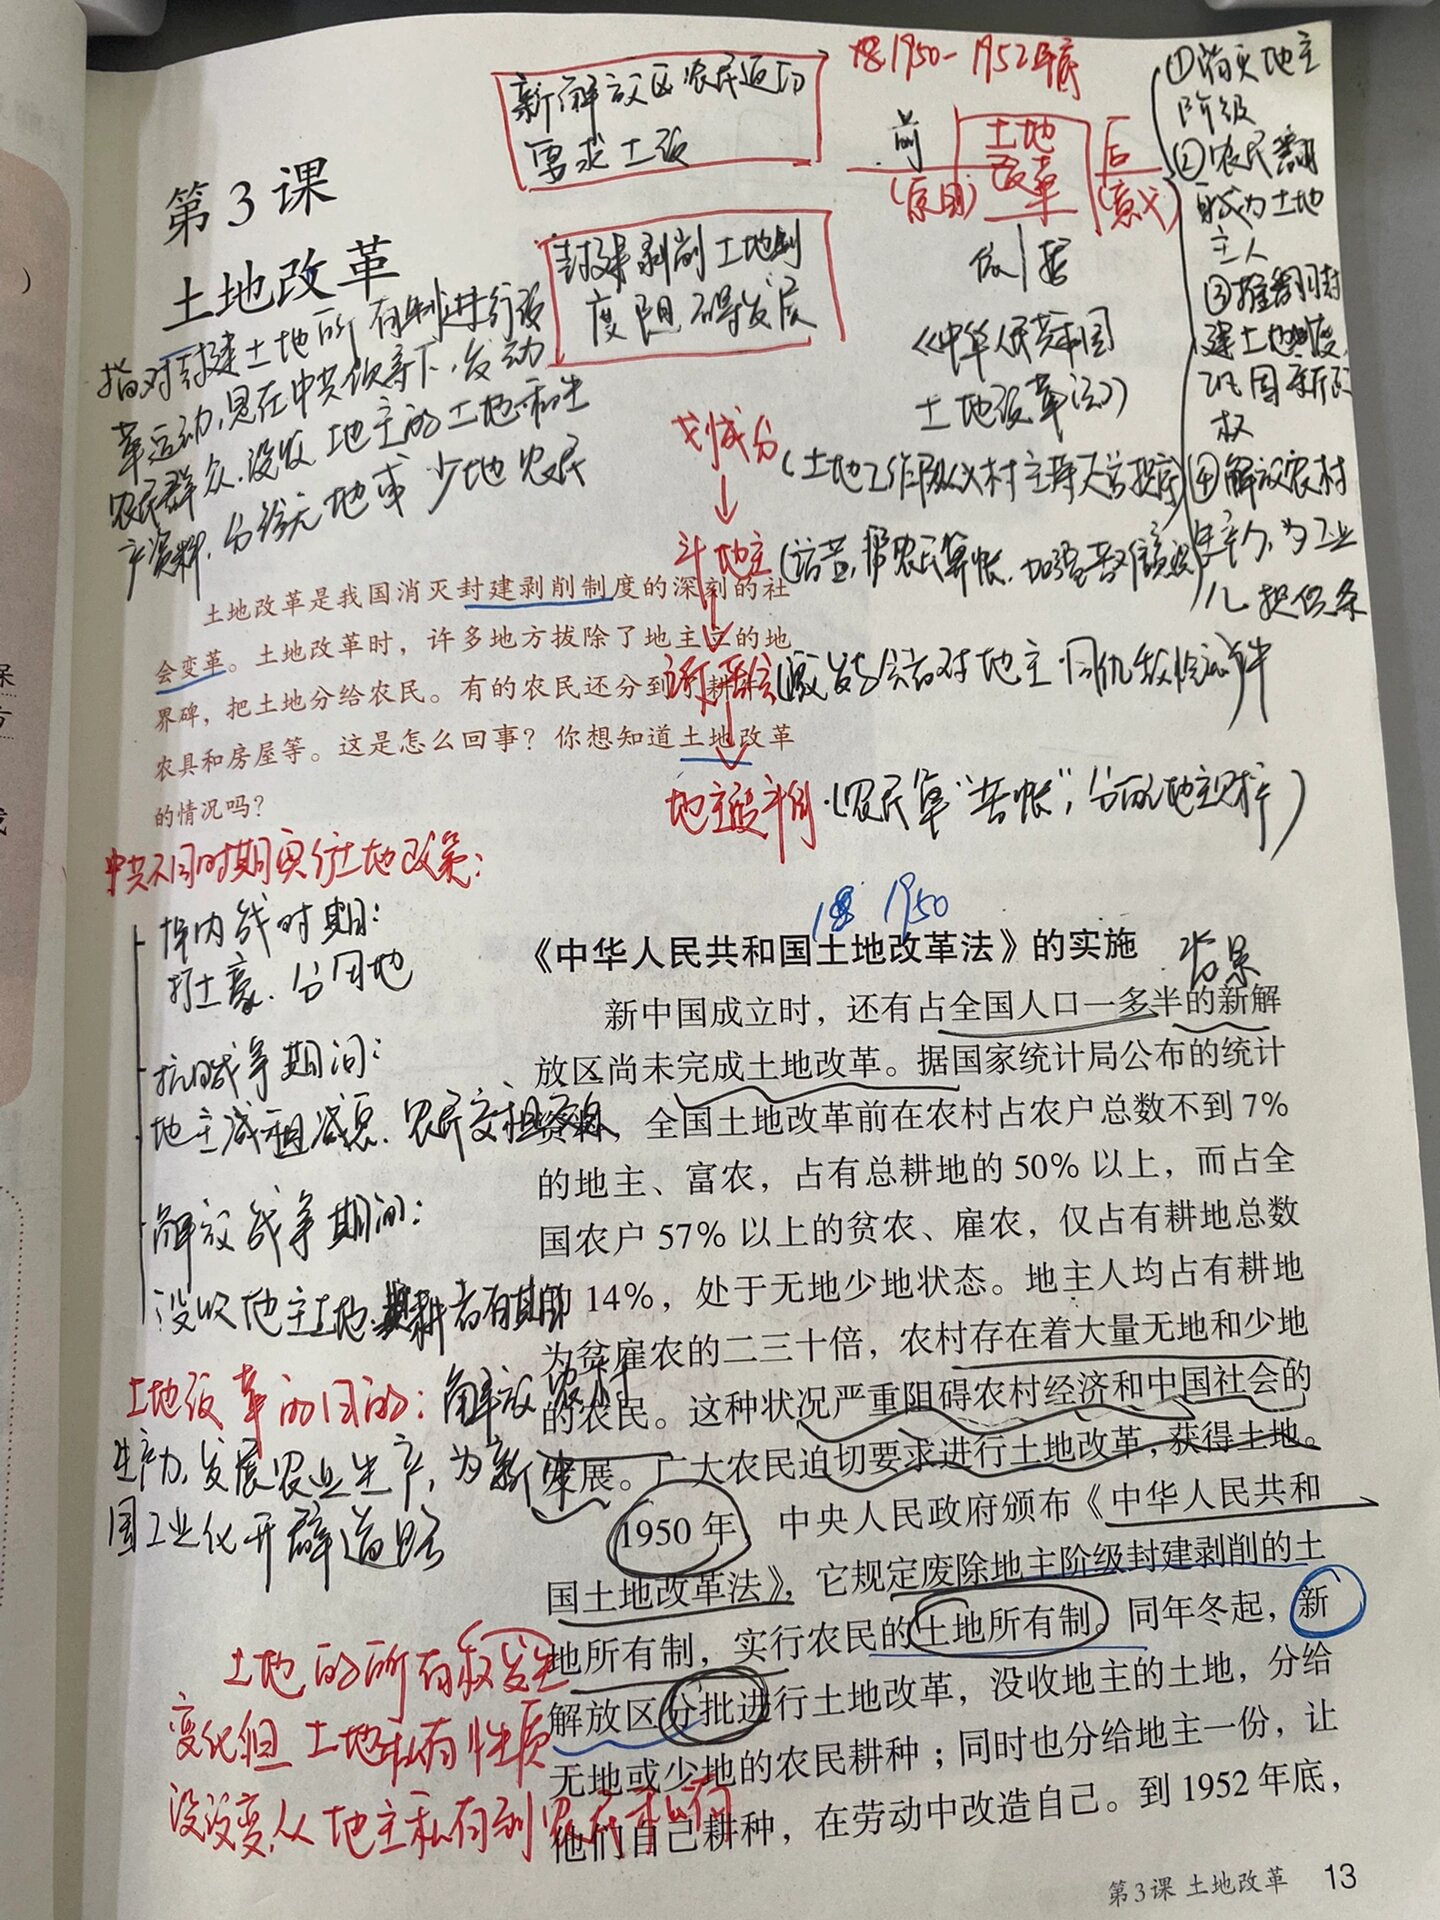 新解放区农民迫切
要求土改
1950-1952年底
前
土地
改革
后
(原因)
(意义)
①消灭地主
阶级
②农民翻
身成为土地
主人
建土地制度,
巩固新政
权
④解放农村
生产力,为工业
化提供条
第3课
土地改革
封建剥削土地制
度阻碍发展
依据
《中华人民共和国
土地改革法》
指对封建土地所有制进行改
革运动,是在中共领导下,发动
农民群众,没收地主的土地和生
产资料,分给无地或少地农民
划成分
斗地主
地主
(农民算“苦帐”,分
土地改革是我国消灭封建剥削制度的深刻的社
会变革。土地改革时,许多地方拔除了地主立的地
界碑,把土地分给农民。有的农民还分到了耕
农具和房屋等。这是怎么回事?你想知道土地改革
的情况吗?
中共不同时期实行土地政策:
内战时期:
打土豪、分田地
抗日战争期间:
地主减租减息,农民交租
解放战争期间:
没收地主土地 耕者有其田
土地改革的目的:解放农村
生产力,发展农业生产,为新中
国工业化开辟道路
土地的所有权发生
变化但土地私有性质
没改变,从地主私有到农民私有
1950
《中华人民共和国土地改革法》的实施
背景
新中国成立时,还有占全国人口一多半的新解
放区尚未完成土地改革。据国家统计局公布的统计
资料,全国土地改革前在农村占农户总数不到7%
的地主、富农,占有总耕地的50%以上,而占全
国农户57%以上的贫农、雇农,仅占有耕地总数
的14%,处于无地少地状态。地主人均占有耕地
为贫雇农的二三十倍,农村存在着大量无地和少地
的农民。这种状况严重阻碍农村经济和中国社会的
发展。广大农民迫切要求进行土地改革,获得土地。
1950年,中央人民政府颁布《中华人民共和
国土地改革法》,它规定废除地主阶级封建剥削的土
地所有制,实行农民的土地所有制。同年冬起,新
解放区分批进行土地改革,没收地主的土地,分给
无地或少地的农民耕种;同时也分给地主一份,让
他们自己耕种,在劳动中改造自己。到1952年底,
第3课 土地改革 13